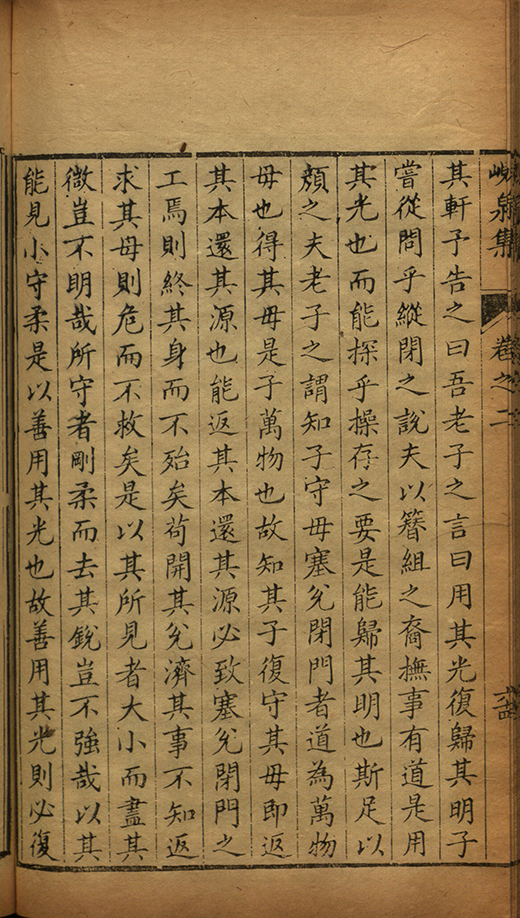 峴泉集 卷之二 六十四
其軒予告之曰吾老子之言曰用其光復歸其明子
嘗從問乎縱閉之說夫以簪組之裔撫事有道是用
其光也而能探乎操存之要是能歸其明也斯足以
頽之夫老子之謂知子守毋塞兊閉門者道為萬物
毋也得其毋是子萬物也故知其子復守其毋即返
其本還其源也能返其本還其源必致塞兊閉門之
工焉則終其身而不殆矣苟開其兊濟其事不知返
求其毋則危而不救矣是以其所見者大小而盡其
微豈不明哉所守者剛柔而去其銳豈不強哉以其
能見小守柔是以善用其光也故善用其光則必復